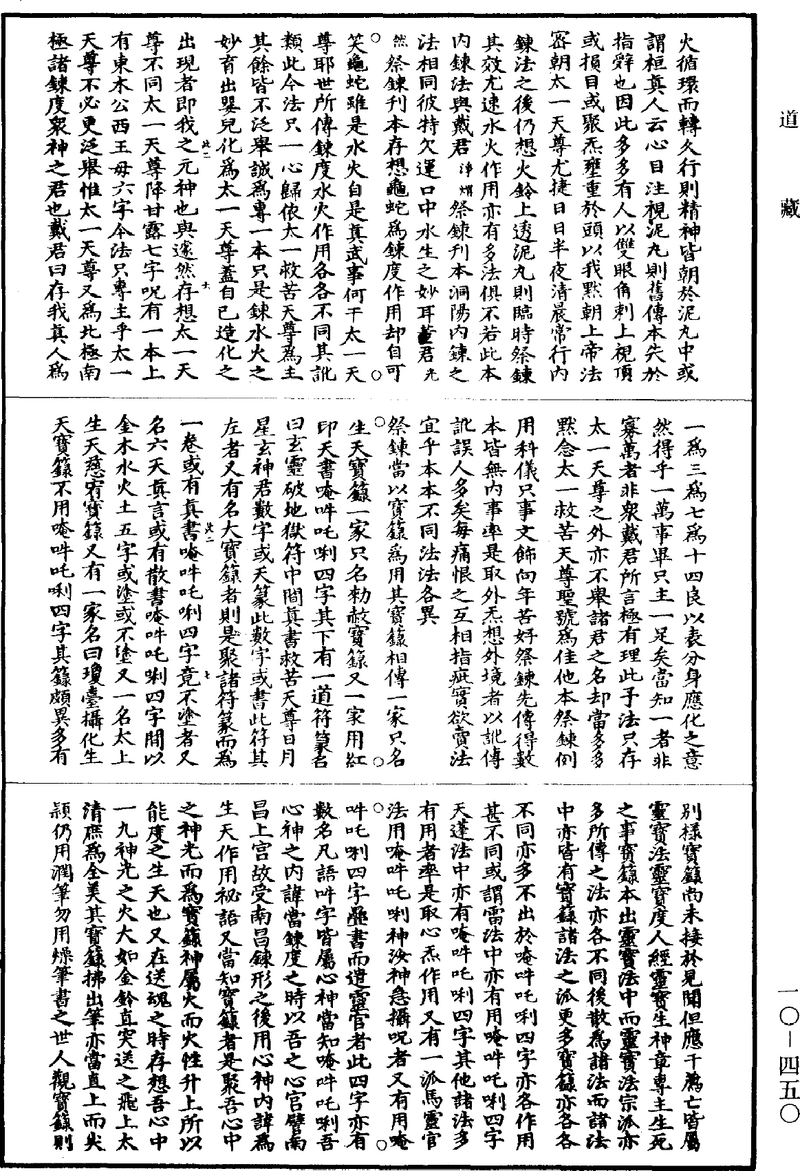 道藏
火循環而轉久行則精神皆朝於泥丸中或
謂桓真人云心目注視泥丸則舊傳本失於
指辭也因此多多有人以雙眼角刺上視頂
或損目或聚炁壅重於頭以我默朝上帝法
密朝太一天尊尤捷日日半夜清晨常行內
鍊法之後仍想火鈴上透泥丸則臨時祭鍊
其效尤速水火作用亦有多法俱不若此本
內鍊法與戴君諱熠祭鍊刊本洞陽內鍊之
法相同彼特欠運口中水生之妙耳董君元
然祭鍊刊本存想龜蛇為鍊度作用却自可
笑龜蛇雖是水火自是真武事何干太一天
尊耶世所傳鍊度水火作用各各不同其訛
類此今法只一心歸依太一救苦天尊為主
其餘皆不泛舉誠為專一本只是鍊水火之
妙育出嬰兒化為太一天尊蓋自己造化之
出現者即我之元神也與遂然存想太一天
尊不同太一天尊降甘露七字呪有一本上
有東木公西王母六字今法只專主乎太一
天尊不必更泛舉惟太一天尊又為北極南
極諸鍊度眾神之君也戴君曰存我真人為
一為三為七為十四良以表分身應化之意
然得乎一萬事畢只主一足矣當知一者非
寡萬者非眾戴君所言極有理此予法只存
太一天尊之外亦不舉諸君之名却當多多
默念太一救苦天尊聖號為佳他本祭鍊例
用科儀只事文飾向年苦好祭鍊先傳得數
本皆無內事率是取外炁想外境者以訛傳
訛誤人多矣每痛恨之互相指疵寶欲賣法
宜乎本本不同法法各異
祭鍊當以寶籙為用其寶籙相傳一家只名
生天寶籙一家只名勑赦寶籙又一家用紅
印天書唵吽吒唎四字其下有一道符篆名
曰玄靈破地獄符中間真書救苦天尊日月
星玄神君數字或天篆此數字或書此符其
左者又有名大寶籙者則是聚諸符篆而為
一卷或有真書唵吽吒唎四字竟不塗者又
名六天真言或有散書唵吽吒唎四字間以
金木水火土五字或塗或不塗又一名太上
生天慈宥寶籙又有一家名曰瓊臺攝化生
天寶籙不用唵吽吒唎四字其籙頗異多有
別樣寶籙尚未接於見聞但應干薦亡皆屬
靈寶法靈寶度人經靈寶生神章專主生死
之事寶籙本出靈寶法中而靈寶法宗派亦
多所傳之法亦各不同後散為諸法而諸法
中亦皆有寶籙諸法之派更多寶籙亦各各
不同亦多不出於唵吽吒唎四字亦各作用
甚不同或謂雷法中亦有用唵吽吒唎四字
天蓬法中亦有唵吽吒唎四字其他諸法多
有用者率是取心炁作用又有一派馬靈官
法用唵吽吒唎神沙神急攝呪者又有用唵
吽吒唎四字疊書而遣靈官者此四字亦有
數名凡語吽字皆屬心神當知唵吽吒唎吾
心神之內諱當鍊度之時以吾之心宮譬南
昌上宮故受南昌鍊形之後用心神內諱為
生天作用祕語又當知寶籙者是聚吾心中
之神光而為寶籙神屬火而火性升上所以
能度之生天也又在送魂之時存想吾心中
一丸神光之火大如金鈴直突送之飛上太
清庶為全美其寶籙拂出筆亦當直上而尖
頴仍用潤筆勿用燥筆書之世人觀寶籙則
一〇—四五〇